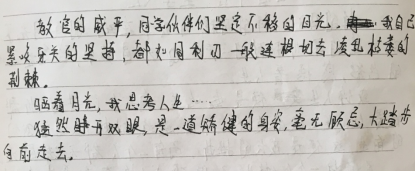 教官的威严,同学伙伴们坚定不移的目光,我自己
累咬牙关的坚持,都如同利刃一般连根切去凌乱枝蔓的
荆棘。
临着月光,我思考人生……
猛然睁开双眼,是一道矫健的身姿,毫无顾忌,大踏步
向前走去。